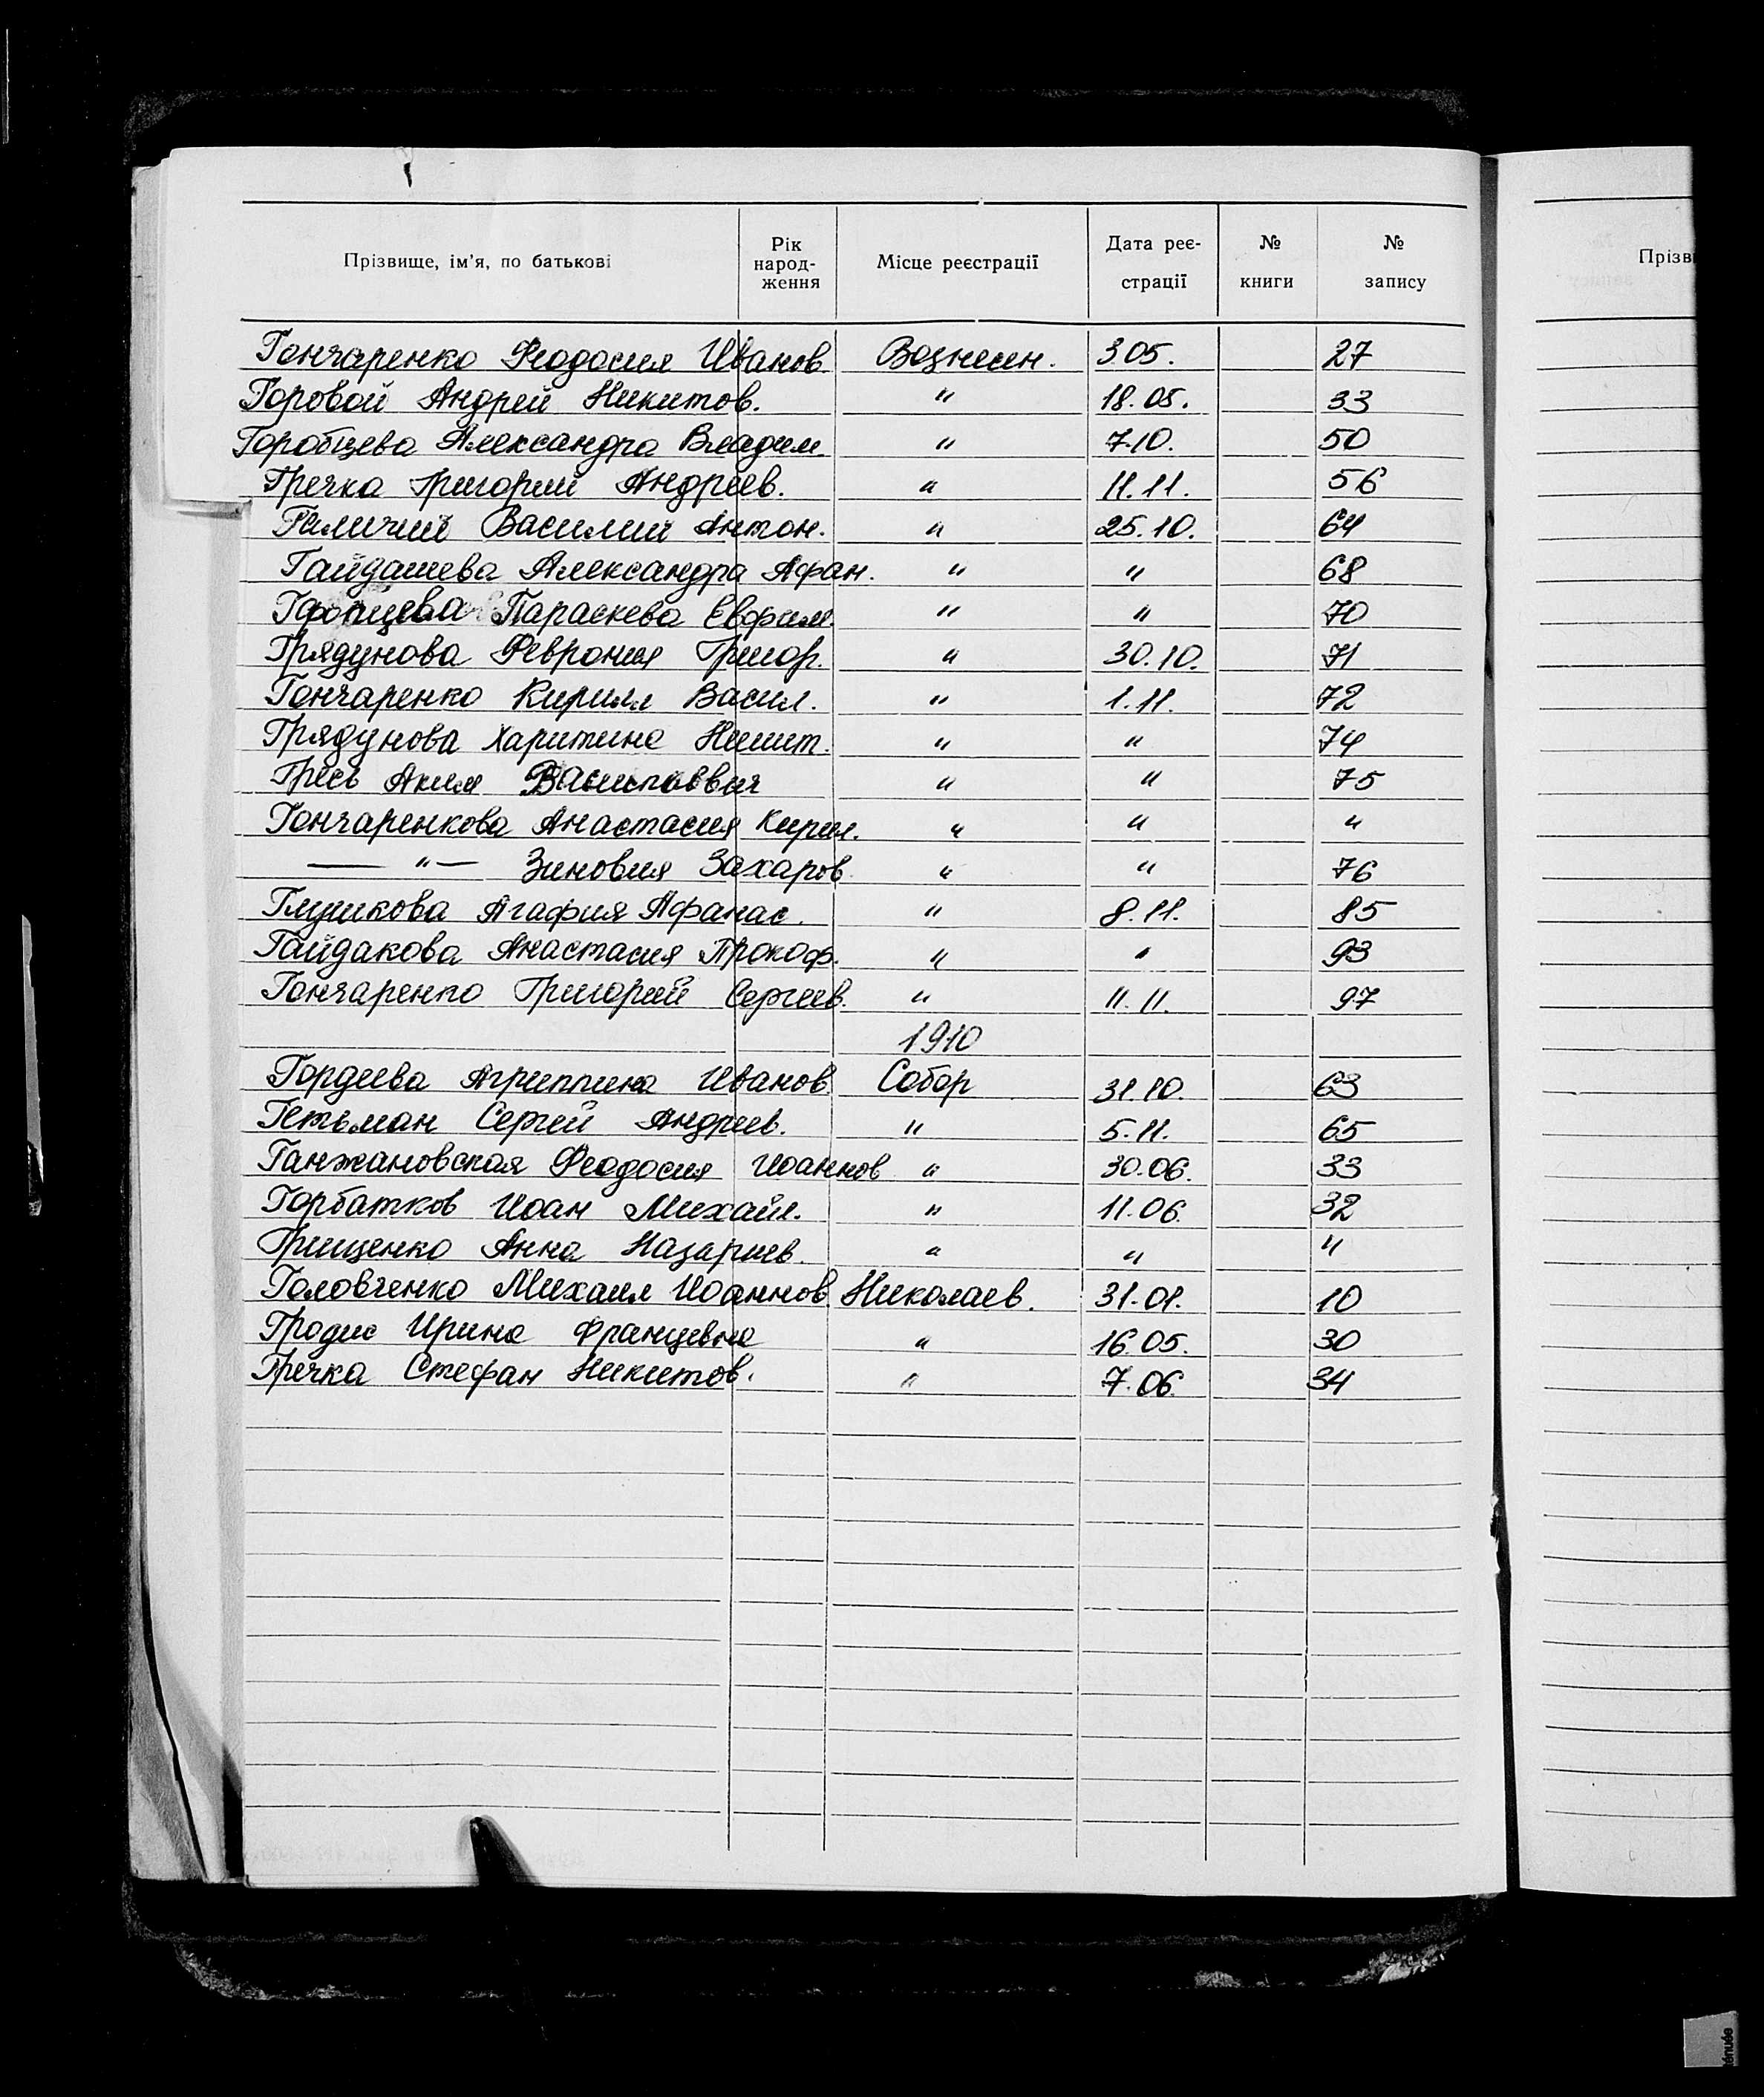 Прізвище, ім'я, по батькові Рік народ-ження Місце реєстрації Дата реє-страції № книги № запису
Прізв
Гончаренко Феодосия Иванов. Вознесен. 3.05. 27
Горовой Андрей Никитов. " 18.05. 33
Горобцева Александра Владим. " 7.10. 50
Гречка Григорий Андреев. " 11.11. 56
Василий Антон. " 25.10. 64
Гайдашева Александра Афан. " " 68
Параскева Евфим. " " 70
Грядунова Феврония Григор. " 30.10. 71
Гончаренко Кирилл Васил. " 1.11. 72
Грядунова Харитина Никит. " " 74
Гресь Аким " " 75
Гончаренкова Анастасия Кирил. " " "
— " — Зиновия Захаров. " " 76
Глушкова Агафия Афанас. " 8.11. 85
Гайдакова Анастасия Прокоф. " " 93
Гончаренко Григорий Сергеев. " 11.11. 97
1910
Гордеева Агриппина Иванов. Собор 31.10. 63
Гетьман Сергей Андреев. " 5.11. 65
Ганжановская Феодосия Иоаннов " 30.06. 33
Горбатков Иоан Михайл. " 11.06. 32
Грищенко Анна Назариев. " " "
Головченко Михаил Иоаннов. Николаев. 31.01. 10
Гродис Ирина Францевна " 16.05. 30
Гречка Стефан Никитов. " 7.06. 34